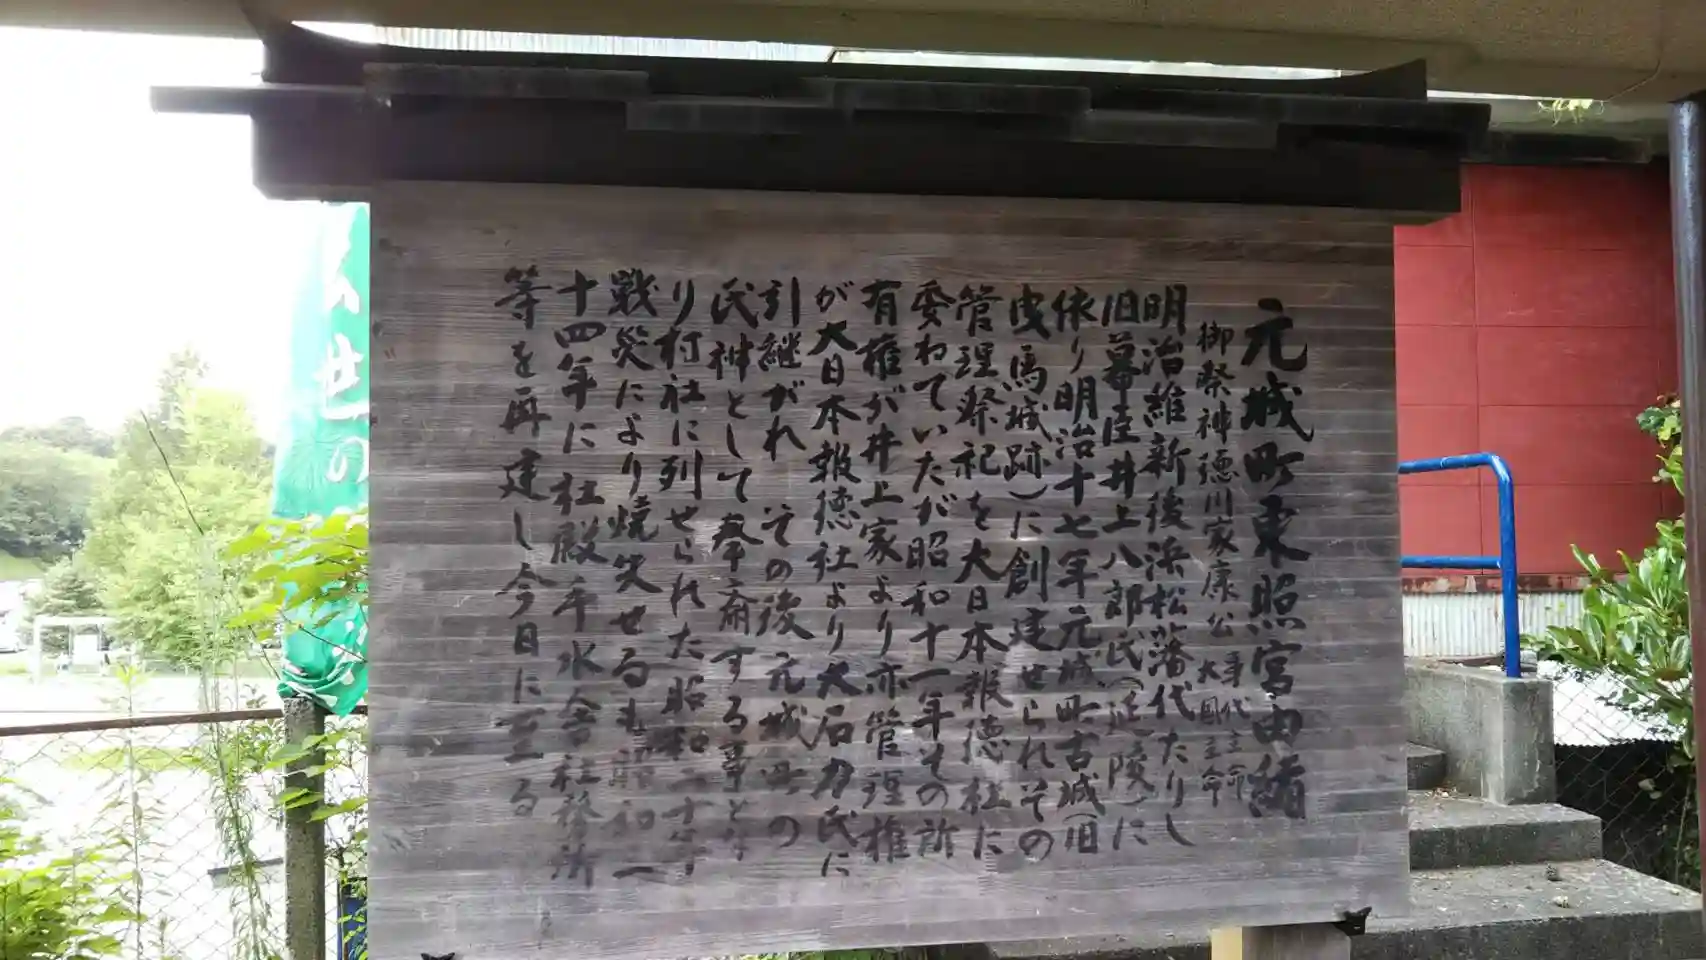 元城町東照宮由緒
御祭神徳川家康公 事代主命
大國主命
明治維新後浜松藩代たりし
旧幕臣井上八郎氏(延陵)に
依り明治十七年元城町古城(旧
曳馬城跡)に創建せられその
管理祭祀を大日本報徳社に
委わていたが昭和十一年その所
有権が井上家より亦管理権
が大日本報徳社より大石力氏に
引継がれ その後元城町の
氏神として奉斎する事とな
り村社に列せられた昭和二十年
戦災により焼失せるも昭和二
十四年に社殿手水舎社務所
等を再建し今日に至る
世の